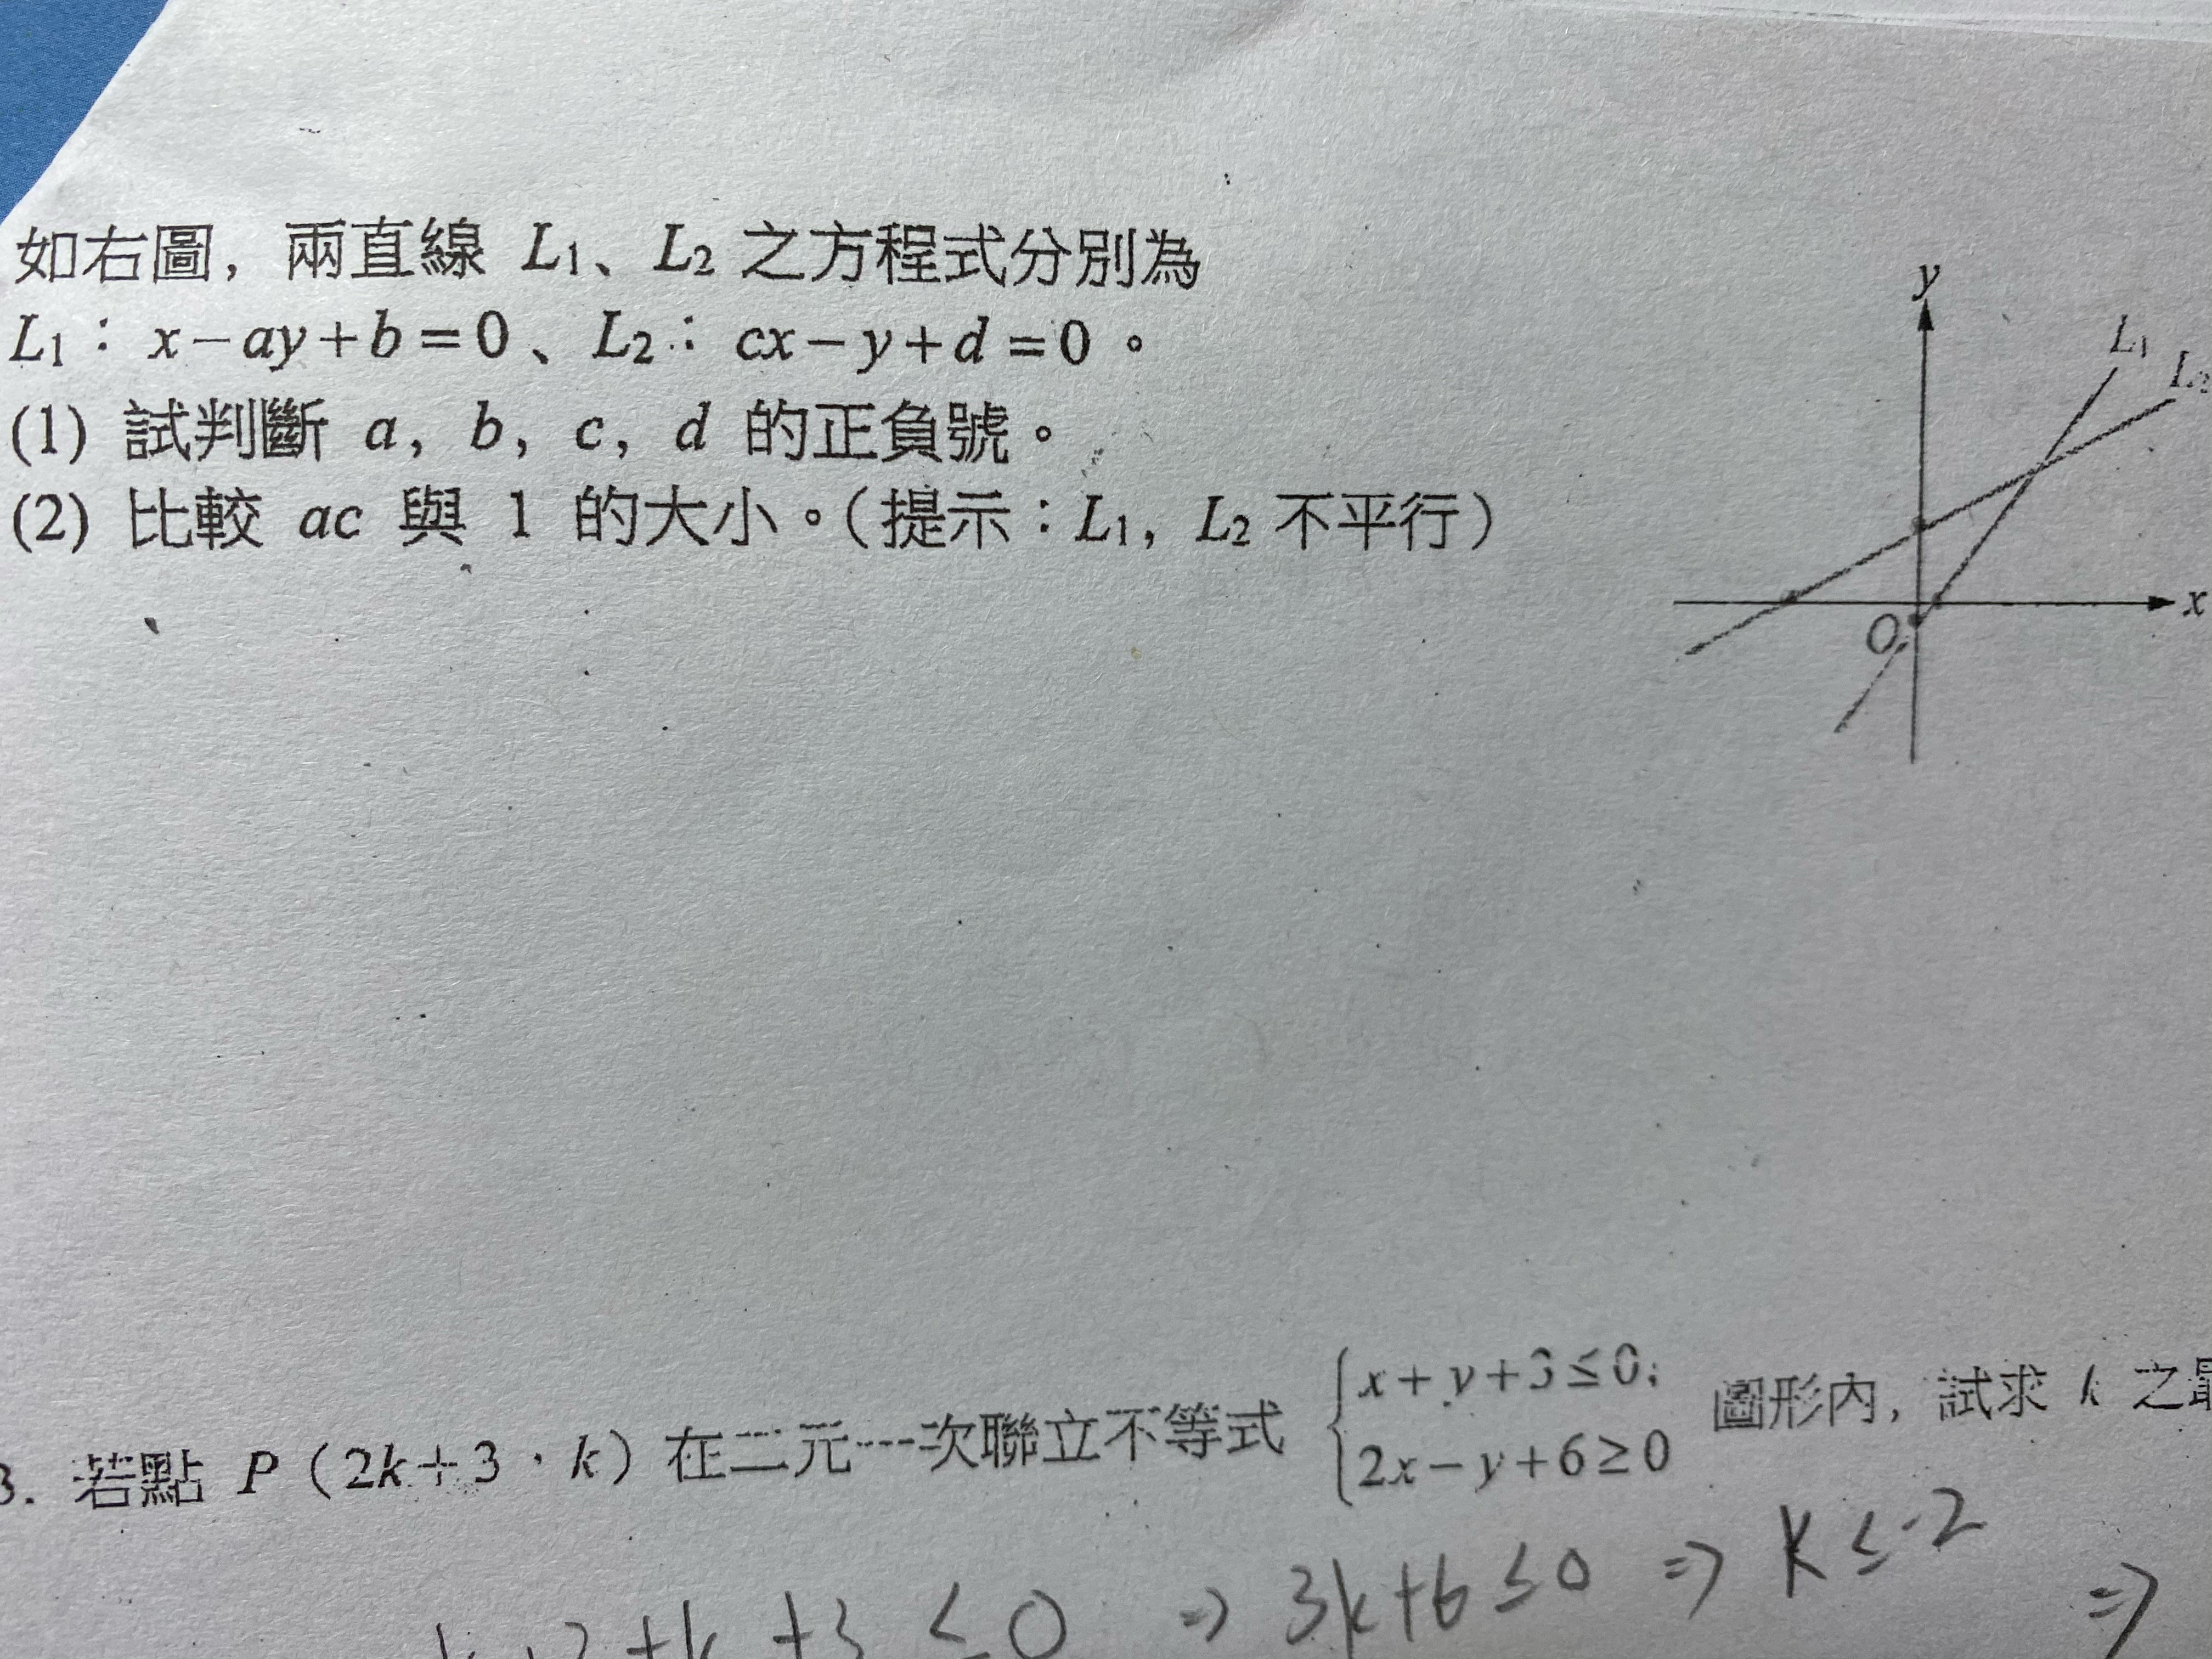 如右圖，兩直線 L₁、L₂ 之方程式分別為
L₁：x－ay＋b＝0、L₂：cx－y＋d＝0。
(1) 試判斷 a，b，c，d 的正負號。
(2) 比較 ac 與 1 的大小。（提示：L₁，L₂ 不平行）
y
L₁
L₂
x
O
3. 若點 P（2k＋3，k）在二元一次聯立不等式 { x＋y＋3≤0; 2x－y＋6≥0 圖形內，試求 k 之最
+k +3 ≤ 0 ⇒ 3k+6 ≤ 0 ⇒ k ≤ -2 ⇒